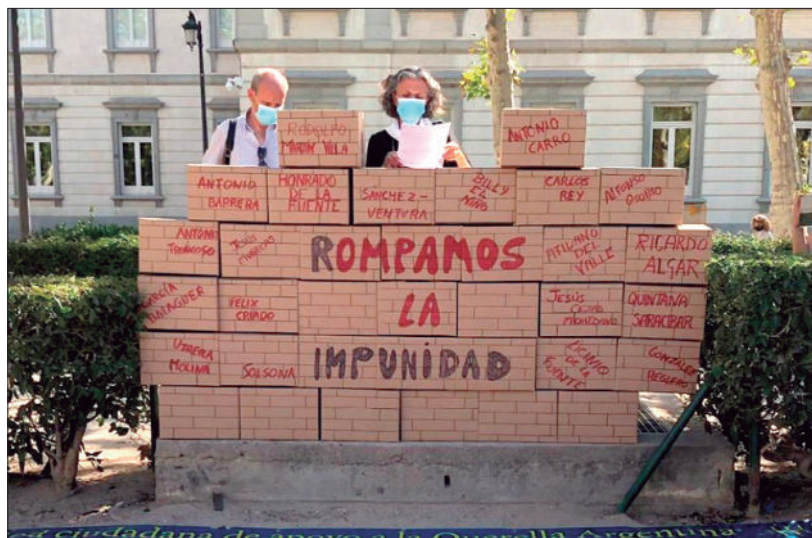 RODOLFO
MARTÍN VILLA
ANTONIO
CARRO
ANTONIO
BARRERA
HONRADO
DE LA
FUENTE
SANCHEZ-
VENTURA
BILLY
EL
NIÑO
CARLOS
REY
ALFONSO
OSORIO
ANTONIO
TRONCOSO
JESÚS
ROMPAMOS
ATILANO
DEL
VALLE
RICARDO
ALGAR
GARCÍA
FELIX
CRIADO
LA
JESÚS
QUINTANA
SARACIBAR
UTRERA
MOLINA
SOLSONA
IMPUNIDAD
LICINIO
DE LA
FUENTE
GONZALEZ
REGUERO
ciudadana de apoyo a la Querella Argentina